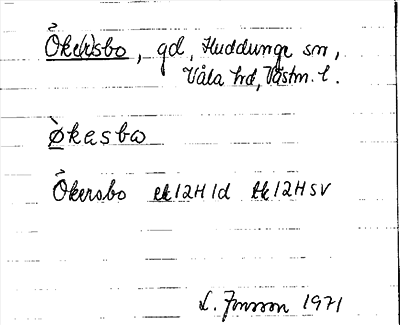 Öke(r)sbo, gd, Huddunge sn,
Våla hd, Västm. l.
Økesbo
Ökersbo ek 12H1d tk 12H SV
L. Jonsson 1971